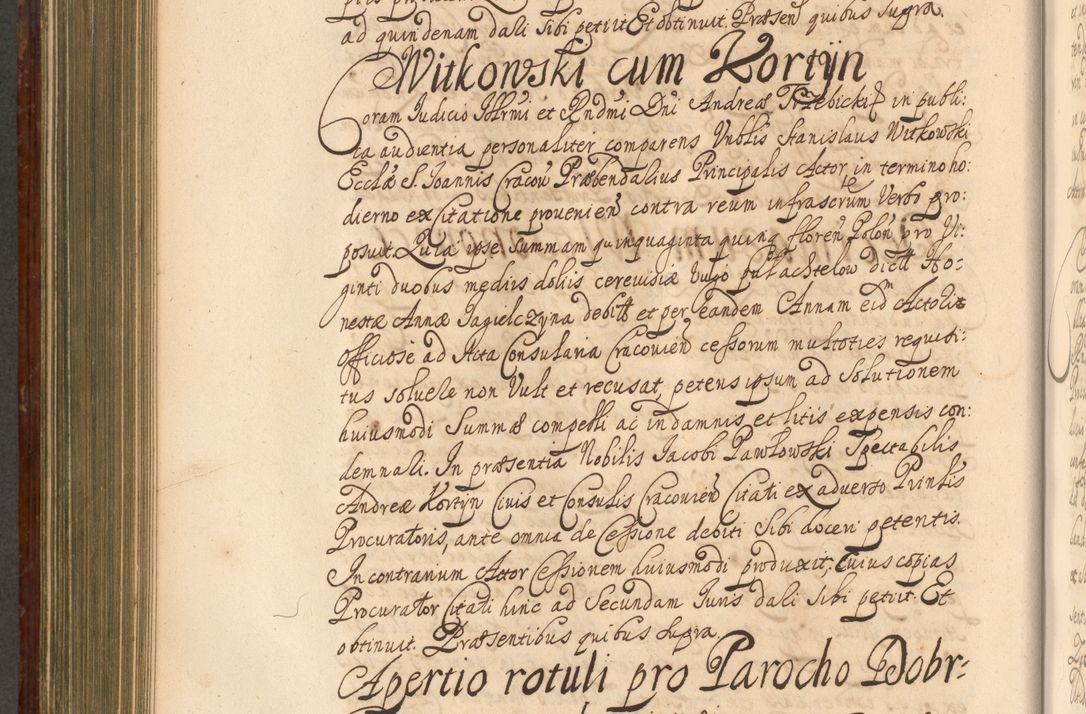 ad quindenam dali sibi petiit Et obtinuit. Præsen quibus supra.
Witkowski cum Kortÿn
Coram Iudicio Illrmi et Rndmi Dni Andreæ Trzebicki in publi:
ca audientia personaliter comparens Vnblis Stanislaus Witkowski
Ecclæ S. Ioannis Cracoū Præbendarius Principalis Actor, in termino ho:
dierno ex Citatione provenien contra reum infrascrūm Verbo pro:
posuit. Quia ipse Summam quinquaginta quinq floren Polon pro Vi:
ginti duobus medius doliis cerevisiæ Vulgo pułachtelow dictt Ho:
nestæ Annæ Jagielczyna debitt et per eandem Annam eidm Actori
officiose ad Acta Consularia Cracovien cessorum multoties requisi:
tus soluere non Vult et recusat, petens ipsum ad Solutionem
huiusmodi Summæ compelli ac in damnis et litis expensis con:
demnali. In præsentia Nobilis Jacobi Pawłowski Spectabilis
Andreæ Kortÿn Civis et Consulis Cracovien Citati ex adverso Prinlis
Procuratoris, ante omnia de Cessione debiti Sibi doceri petentis.
In contrarium Actor Cessionem huiusmodi produxit; Cuius copias
Procurator Citati hinc ad Secundam Iuris dali Sibi petiit. Et
obtinuit. Præsentibus quibus supra.
Apertio rotuli pro Parocho Dobr-